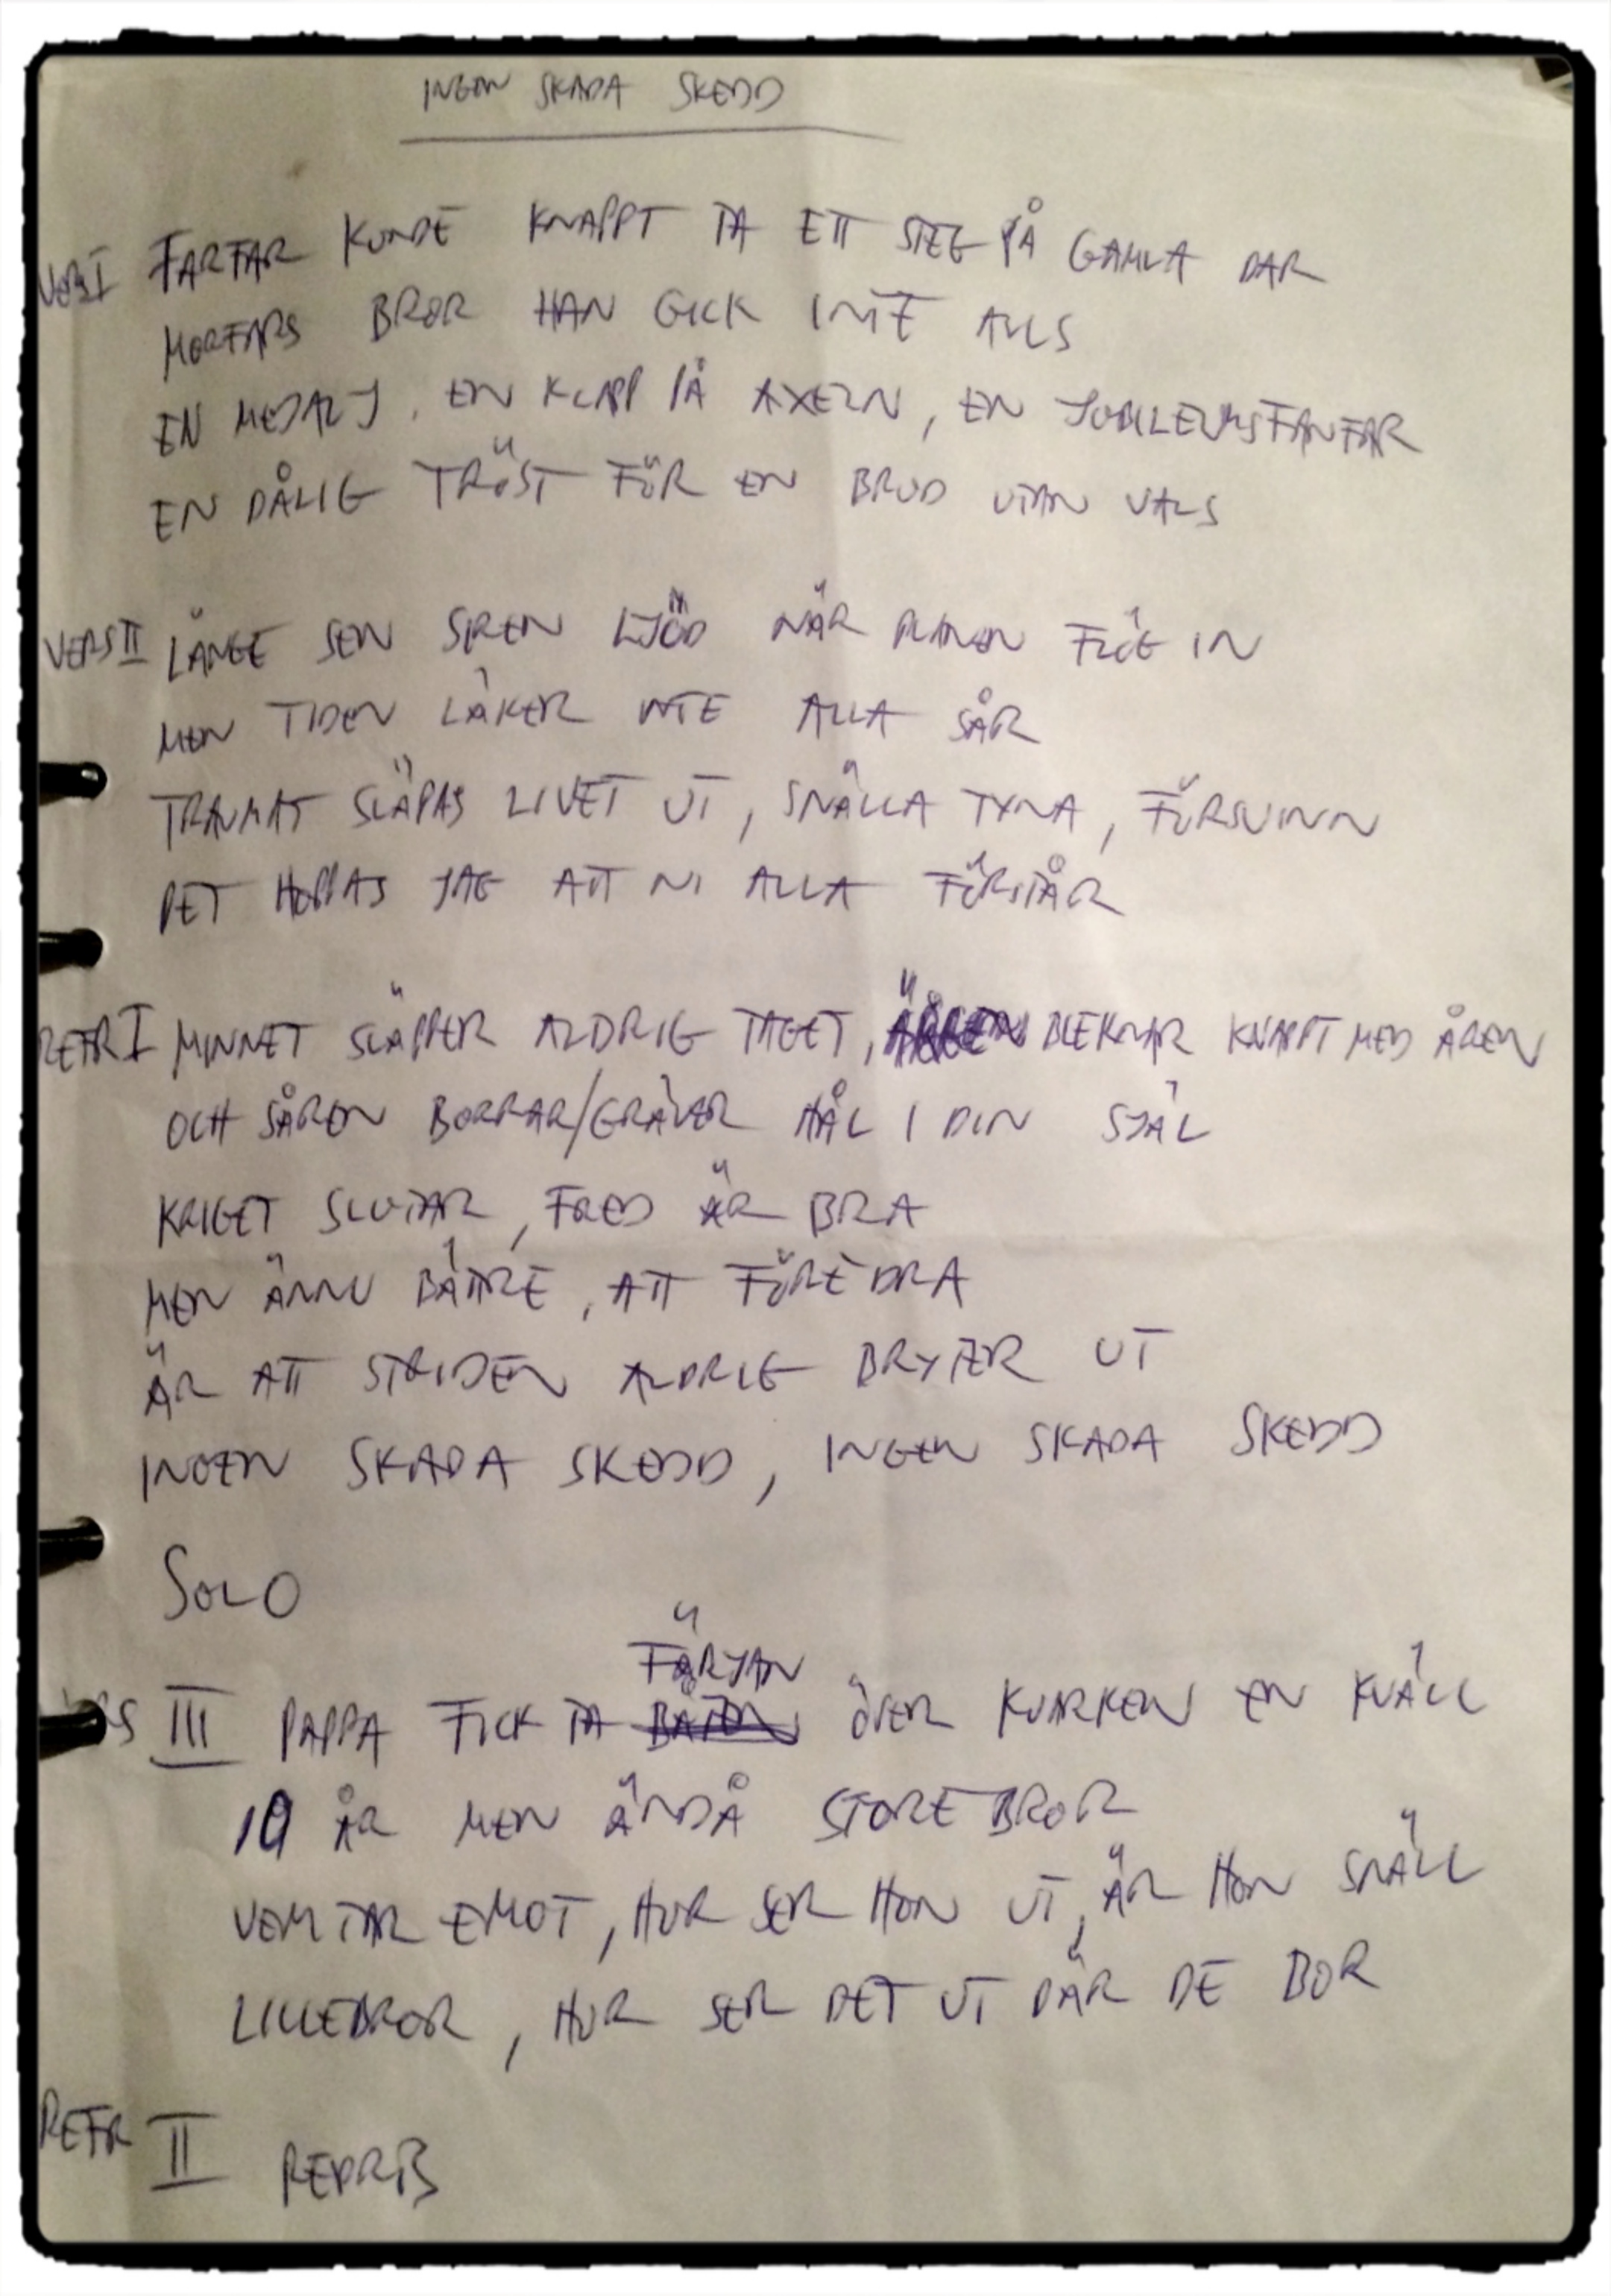 INGEN SKADA SKEDD
VERS I FARFAR KUNDE KNAPPT TA ETT STEG PÅ GAMLA DAR
MORFARS BROR HAN GICK INTE ALLS
EN MEDALJ, EN KLAPP PÅ AXELN, EN JUBILEUMSFANFAR
EN DÅLIG TRÖST FÖR EN BRUD UTAN VALS
VERS II LÄNGE SEN SIREN LJÖD NÄR PLANEN FLÖG IN
MEN TIDEN LÄKER INTE ALLA SÅR
TRAUMAT SLÄPAS LIVET UT, SNÄLLA TYNA, FÖRSVINN
DET HOPPAS JAG ATT NI ALLA FÖRSTÅR
REFR I MINNET SLÄPPER ALDRIG TAGET, BLEKNAR KNAPPT MED ÅREN
OCH SÅREN BORRAR/GRÄVER HÅL I DIN SJÄL
KRIGET SLUTAR, FRED ÄR BRA
MEN ÄNNU BÄTTRE, ATT FÖREDRA
ÄR ATT STRIDEN ALDRIG BRYTER UT
INGEN SKADA SKEDD, INGEN SKADA SKEDD
SOLO
FÄRJAN
VERS III PAPPA FICK TA BÅTEN ÖVER KVARKEN EN KVÄLL
10 ÅR MEN ÄNDÅ STOREBROR
VEM TAR EMOT, HUR SER HON UT, ÄR HON SNÄLL
LILLEBROR, HUR SER DET UT DÄR DE BOR
REFR II REPRIS